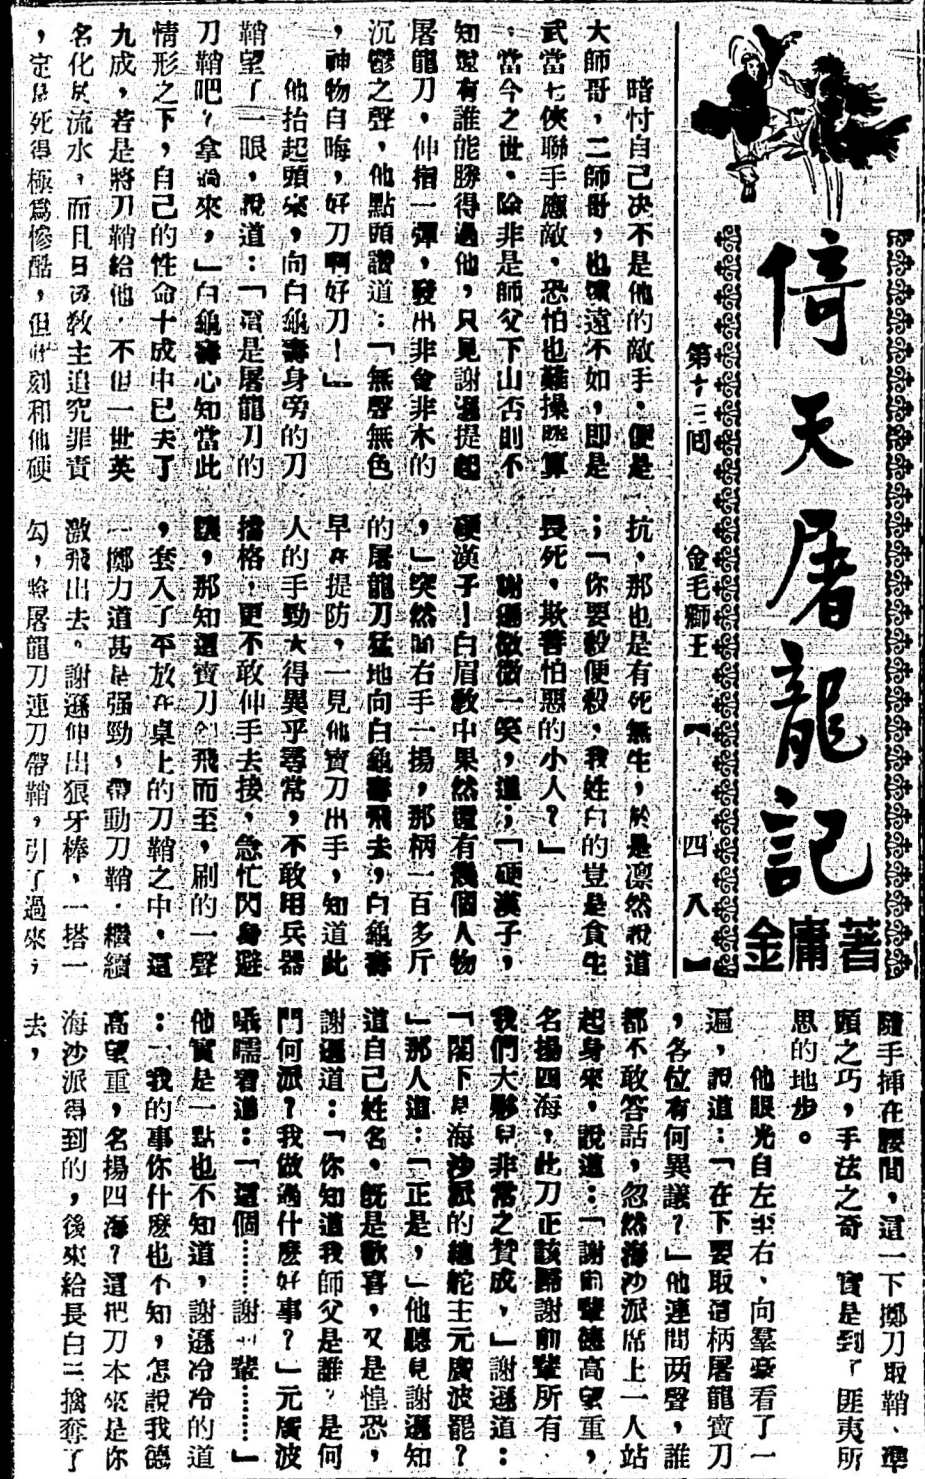 倚天屠龍記
金庸著
第十三回　金毛獅王　【四八】
暗忖自己決不是他的敵手，便是
大師哥，二師哥，也遠遠不如，即是
武當七俠聯手應敵，恐怕也難操勝算
，當今之世，除非是師父下山否則不
知還有誰能勝得過他，只見謝遜提起
屠龍刀，伸指一彈，發出非金非木的
沉鬱之聲，他點頭讚道：「無聲無色
，神物自晦，好刀啊好刀！」
他抬起頭來，向白龜壽身旁的刀
鞘望了一眼，說道：「這是屠龍刀的
刀鞘吧？拿過來，」白龜壽心知當此
情形之下，自己的性命十成中已失了
九成，若是將刀鞘給他，不但一世英
名化於流水，而且日後教主追究罪責
，定是死得極為慘酷，但此刻和他硬
抗，那也是有死無生，於是凛然說道
；「你要殺便殺，我姓白的豈是貪生
畏死，欺善怕惡的小人？」
謝遜微微一笑，道；「硬漢子，
硬漢子！白眉教中果然還有幾個人物
，」突然間右手一揚，那柄一百多斤
的屠龍刀猛地向白龜壽飛去，白龜壽
早在提防，一見他寶刀出手，知道此
人的手勁大得異乎尋常，不敢用兵器
擋格，更不敢伸手去接，急忙閃身避
讓，那知這寶刀斜飛而至，刷的一聲
，套入了平放在桌上的刀鞘之中，這
一擲力道甚是强勁，帶動刀鞘，繼續
激飛出去。謝遜伸出狼牙棒，一搭一
勾，將屠龍刀連刀帶鞘，引了過來，
隨手挿在腰間，這一下擲刀取鞘、準
頭之巧，手法之奇　實是到了匪夷所
思的地步。
他眼光自左至右、向羣豪看了一
遍，說道：「在下要取這柄屠龍寶刀
，各位有何異議？」他連問两聲，誰
都不敢答話，忽然海沙派席上一人站
起身來，說道：「謝前輩德高望重，
名揚四海，此刀正該歸謝前輩所有，
我們大夥兒非常之贊成，」謝遜道：
「閣下是海沙派的總舵主元廣波罷？
」那人道：「正是，」他聽見謝遜知
道自己姓名，既是歡喜，又是惶恐，
謝遜道：「你知道我師父是誰？是何
門何派？我做過什麼好事？」元廣波
囁嚅着道：「這個………謝前輩………」
他實是一點也不知道，謝遜冷冷的道
：「我的事你什麼也不知，怎說我德
高望重，名揚四海？這把刀本來是你
海沙派得到的，後來給長白三擒奪了
去，